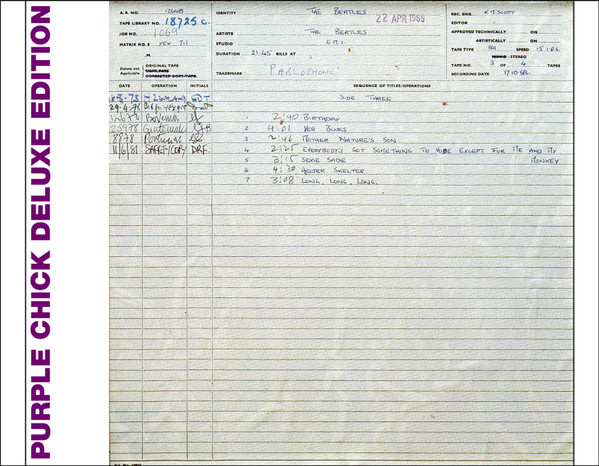 PURPLE CHICK DELUXE EDITION
A.R. NO.
TAPE LIBRARY NO. 18725 C.
JOB NO. 1069
MATRIX NO.S YEX 711
Delete not Applicable
ORIGINAL TAPE
IDENTITY THE BEATLES
22 APR 1969
ARTISTE THE BEATLES
STUDIO EMI
DURATION 21.45 BILLS AT
TRADEMARK PARLOPHONE
REC. ENG. K T SCOTT
EDITOR
APPROVED TECHNICALLY ON
ARTISTICALLY ON
TAPE TYPE SPEED 15 I.P.S.
MONO - STEREO
TAPE NO. 3 OF 4 TAPES
RECORDING DATE 17 10 68
DATE OPERATION INITIALS
SEQUENCE OF TITLES/OPERATIONS
SIDE THREE
Bolivia
25978 Guatemala
8878 Portugal
11/6/81 SAFETY COPY DRF.
1 2:40 BIRTHDAY
2 4:01 YER BLUES
3 2:46 MOTHER NATURE'S SON
4 2:25 EVERYBODY'S GOT SOMETHING TO HIDE EXCEPT FOR ME AND MY
MONKEY
5 3:15 SEXIE SADIE
6 4:30 HELTER SKELTER
7 3:08 LONG, LONG, LONG.